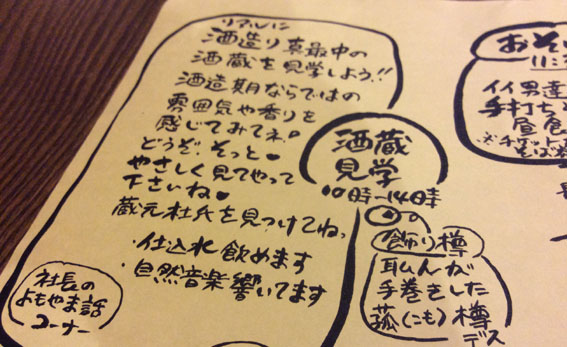 リアルに
酒造り真最中の
酒蔵を見学しよう!!
酒造期ならではの
雰囲気や香りを
感じてみてネ。
どうぞ そっと♥
やさしく見てやって
下さいね♥
蔵元杜氏を見つけてね♪
・仕込水飲めます
・自然音楽響いてます
社長の
よもやま話
コーナー
酒蔵
見学
10時〜14時
飾り樽
手巻きした
菰(こも)樽
デス
おそ
イイ男達
手打ち
昼食